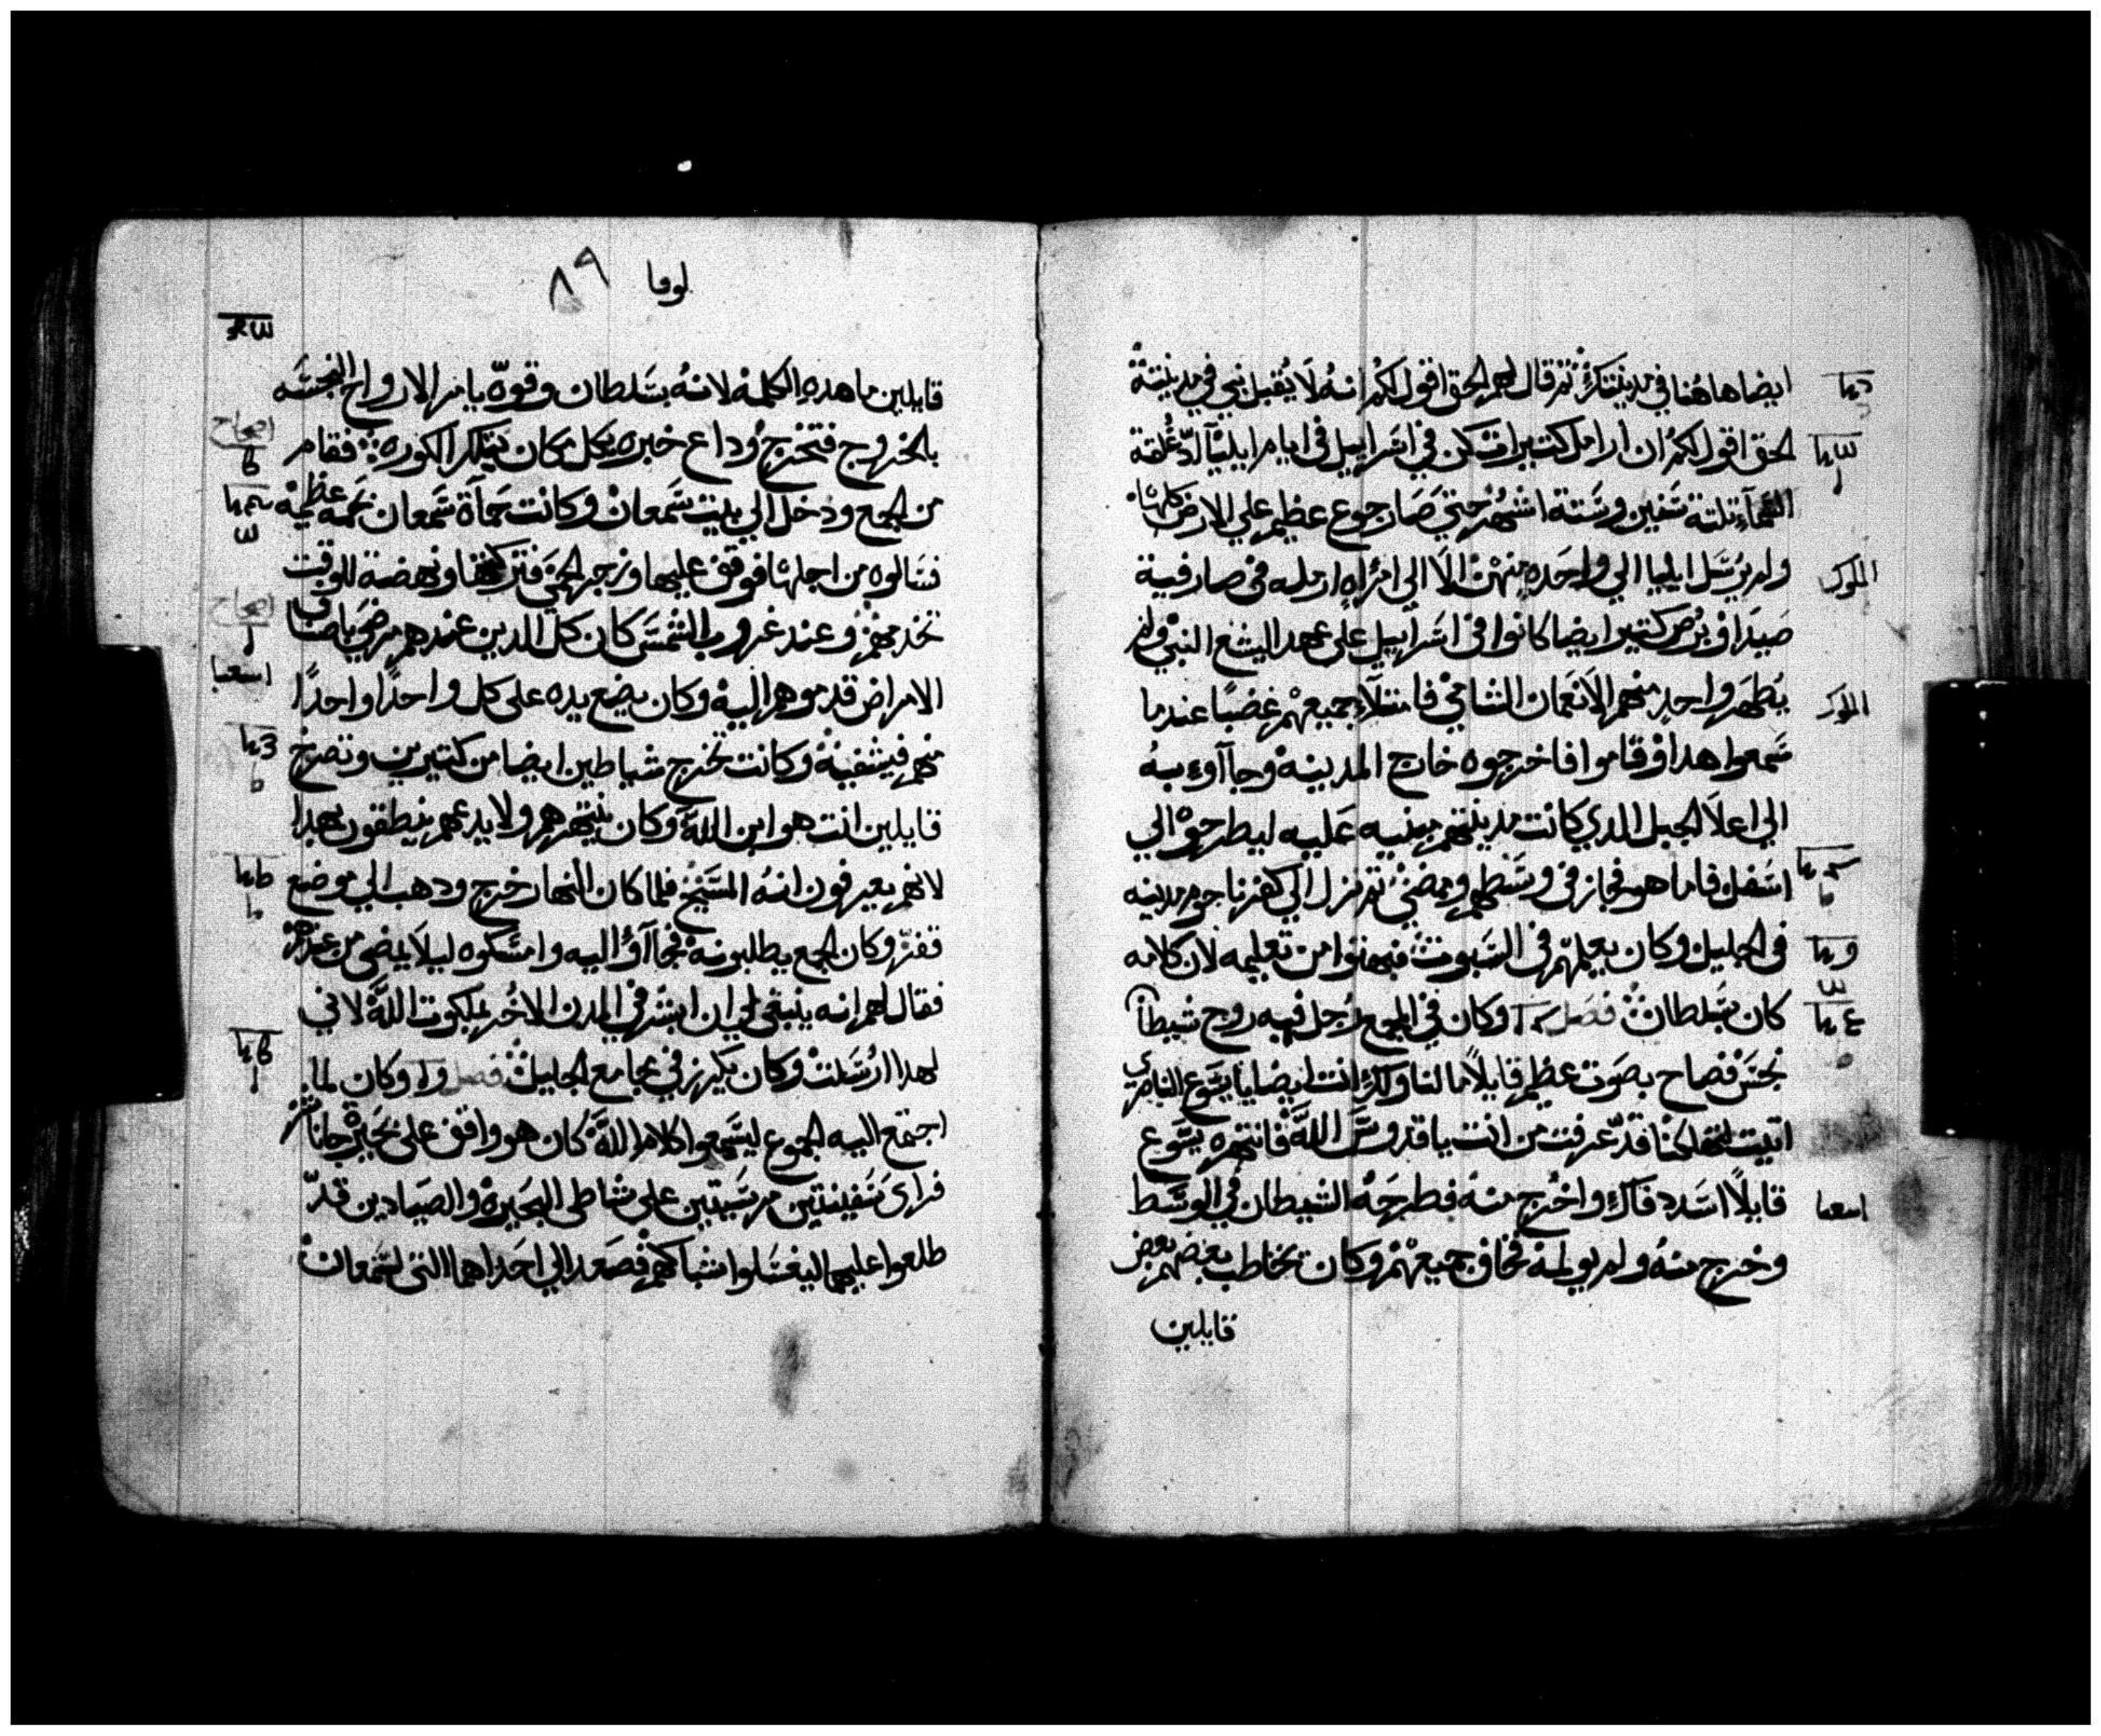 ايضا هاهنا في مدينتك ثم قال لهم الحق اقول لكم انه لا يقبل نبي في مدينته
الحق اقول لكم ان ارامل كتيرات كن في اسراييل في ايام ايليا اد غلقة
السماء تلتة سنين وستة اشهر حتي صار جوع عظيم علي الارض كلها
ولم يرسل ايليا الي واحده منهن الا الي امراه ارمله في صارفية
صيدا وبرص كتير ايضا كانوا في اسراييل علي عهد اليشع النبي ولم
يطهر واحد منهم الا نعمان الشامي فامتلاء جميعهم غضبا عندما
سمعوا هدا وقاموا فاخرجوه خارج المدينه وجاآوء به
الي اعلا الجبل الدي كانت مدينتهم مبنيه عليه ليطرحوه الي
اسفل فاما هو فجاز في وسطهم ومضي تم نزل الي كفرناحوم مدينه
في الجليل وكان يعلمهم في السبوت فبهتوا من تعليمه لان كلامه
كان بسلطان فصل وكان في المجمع رجل فيه روح شيطان
نجس فصاح بصوت عظيم قايلا ما لنا ولك انت ايضا يا يسوع الناصري
اتيت لتهلكنا قد عرفت من انت يا قدوس الله فانتهره يسوع
قايلا اسدد فاك واخرج منه فطرحه الشيطان في الوسط
وخرج منه ولم يولمه فخاف جميعهم وكان يخاطب بعضهم بعض
قايلين
الملوك
الملوك
لوقا ٨٩
قايلين ما هده الكلمه لانه بسلطان وقوه يامر الارواح النجسه
بالخروج فتخرج وداع خبره بكل مكان بتلك الكوره فقام
من الجمع ودخل الي بيت سمعان وكانت حماة سمعان بحمه عظيمه
فسالوه من اجلها فوقف عليها وزجر الحمي فتركتها ونهضة للوقت
تخدمهم وعند غروب الشمس كان كل الدين عندهم مرضي باصناف
الامراض قدموهم اليه وكان يضع يده علي كل واحدا واحدا
منهم فيشفيه وكانت تخرج شياطين ايضا من كتيرين وتصرخ
قايلين انت هو ابن الله وكان ينتهرهم ولا يدعهم ينطقون بهدا
لانهم يعرفون انه المسيح فلما كان النهار خرج ودهب الي موضع
قفر وكان الجمع يطلبونه فجاآوا اليه وامسكوه ليلا يمضي من عندهم
فقال لهم انه ينبغي لي ان ابشر في المدن الاخر بملكوت الله لاني
لهدا ارسلت وكان يكرز في مجامع الجليل فصل وكان لما
اجتمع اليه الجموع ليسمعوا كلام الله كان هو واقف علي بحيرة جاناشر
فراي سفينتين مرسيتين علي شاطي البحيره والصيادين قد
طلعوا عليهما ليغسلوا شباكهم فصعد الي احداهما التي لسمعان
اصحاح
اصحاح